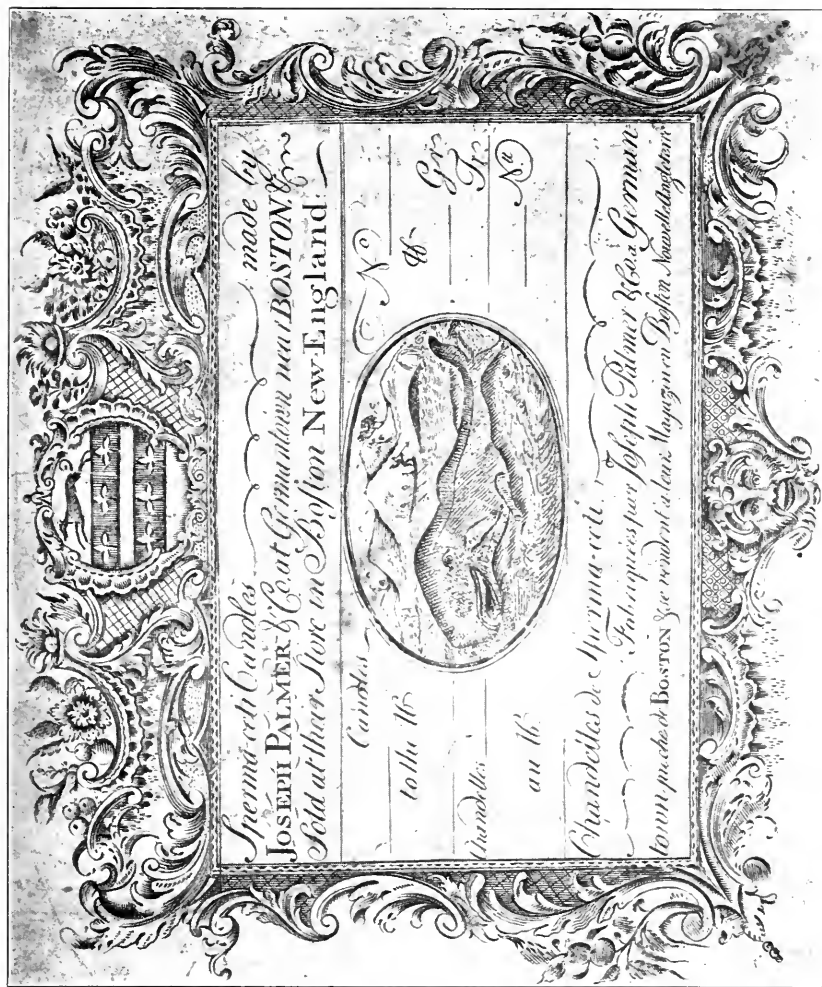 Sperma-ceti Candles made by
JOSEPH PALMER & Co. at Germantown near BOSTON, &
Sold at their Store in Boston New-England.
Candles No
to the lb lb
Gr
Chandelles Tr
au lb Nt
Chandelles de Sperma-ceti
Fabriquées par Joseph Palmer & Co. a German
town proche de BOSTON & se vendent a leur Magazin en Boston Nouvelle Angleterre